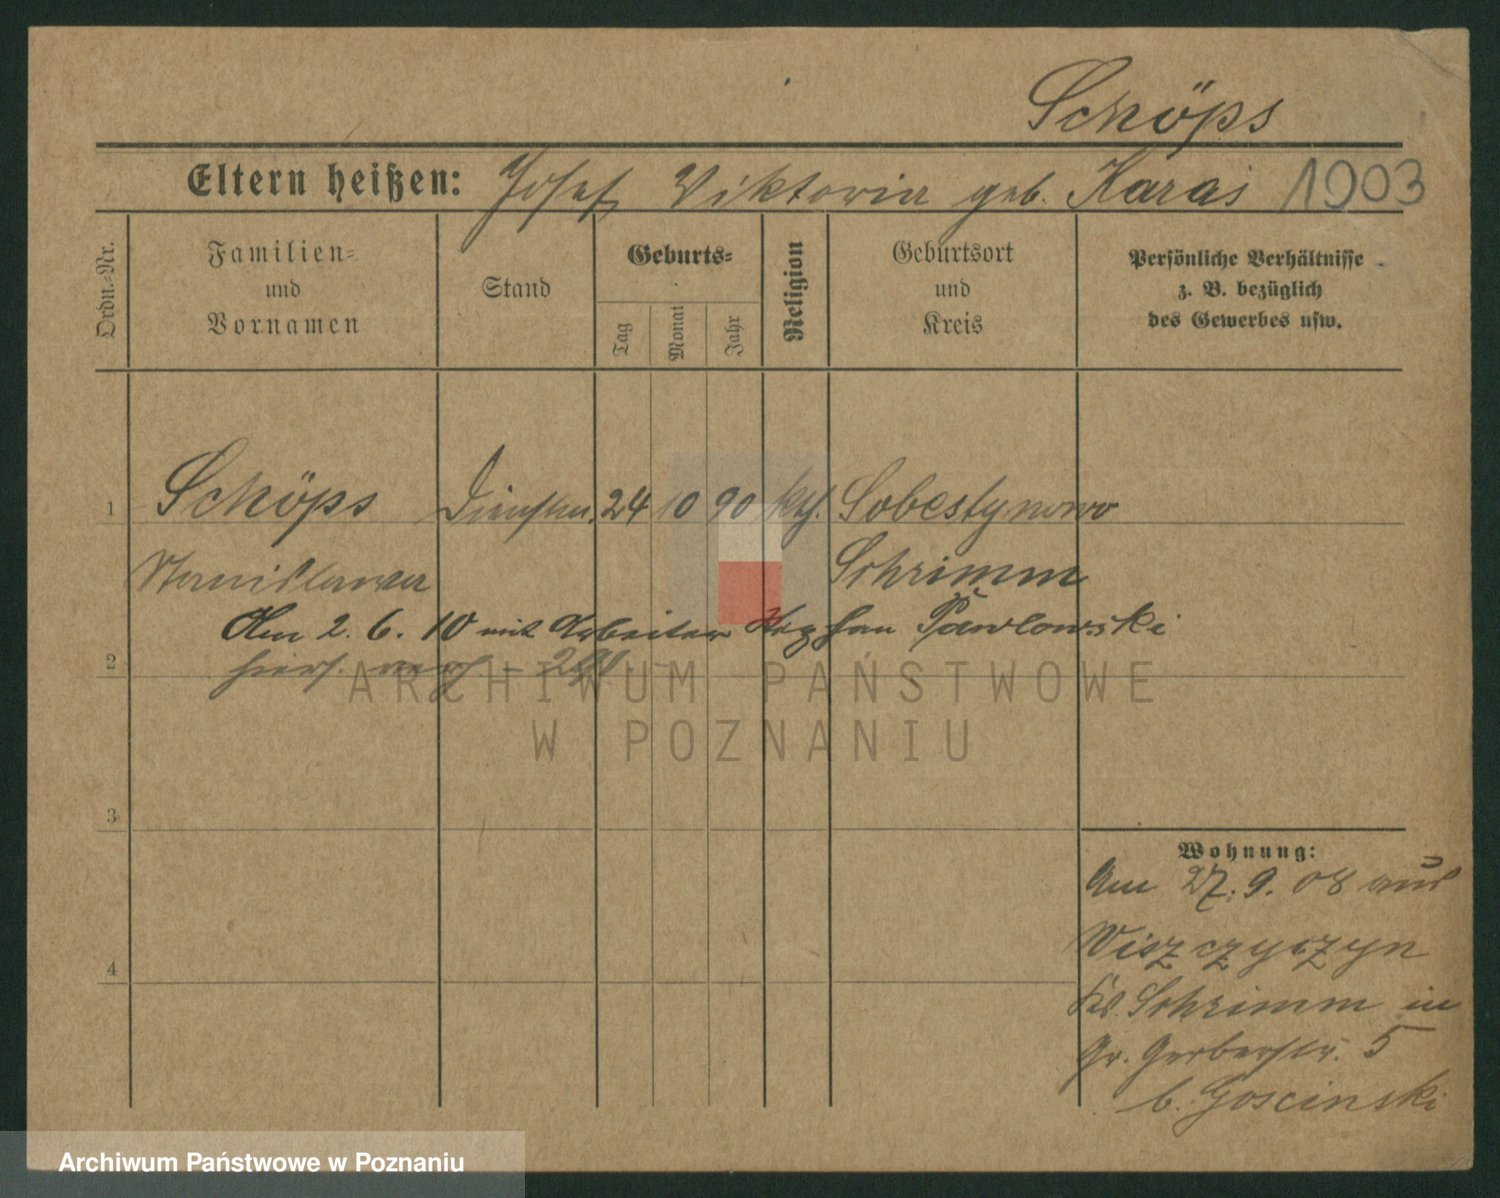 Schöps
Eltern heißen: Josef, Viktoria geb. Karas 1903
Ordn.-Nr.
Familien- und Vornamen
Stand
Geburts-
Tag Monat Jahr
Religion
Geburtsort und Kreis
Persönliche Verhältnisse z. B. bezüglich des Gewerbes usw.
1 Schöps 24 10 90 kth. Sobestynowo
Stanislawa Schrimm
Am 2. 6. 10 mit Arbeiter Pawlowski
2 hiers.
3
4
Wohnung:
Am 27. 9. 08 aus
Wiszczyczyn
Kr. Schrimm in
Gr. Gerberstr. 5
b. Goscinski
ARCHIWUM PAŃSTWOWE
W POZNANIU
Archiwum Państwowe w Poznaniu